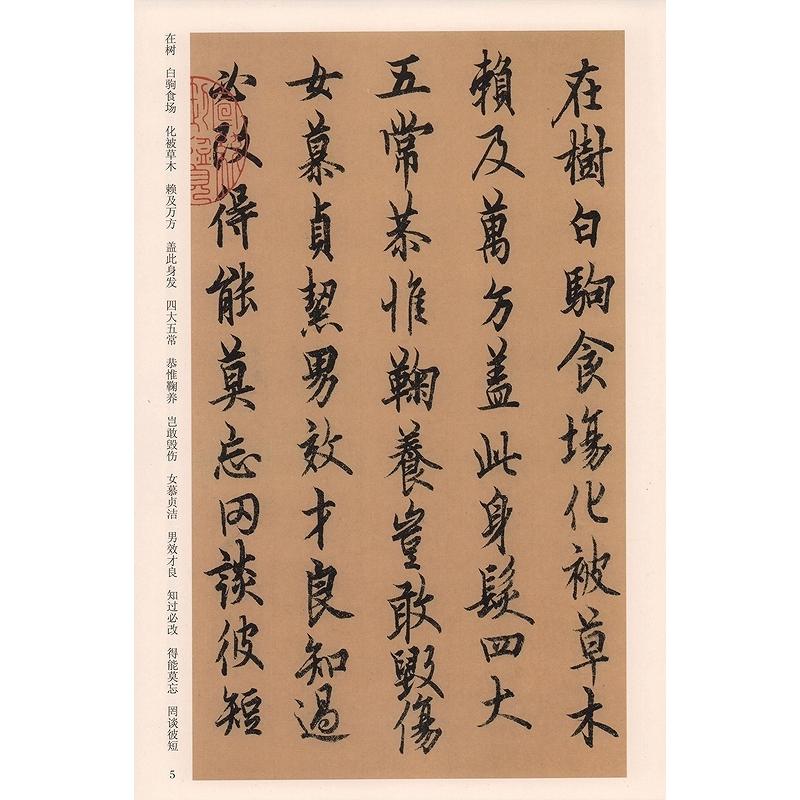 在樹白駒食場化被草木
賴及萬方蓋此身髮四大
五常恭惟鞠養豈敢毀傷
女慕貞絜男效才良知過
必改得能莫忘罔談彼短
在树 白驹食场 化被草木 赖及万方 盖此身发 四大五常 恭惟鞠养 岂敢毁伤 女慕贞洁 男效才良 知过必改 得能莫忘 罔谈彼短
5